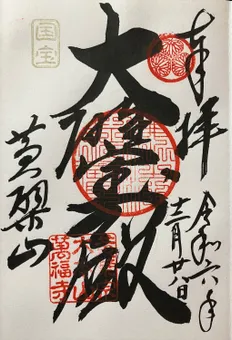 奉拝
令和六年
十二月廿八日
国宝
大雄宝殿
黄檗山
萬福寺